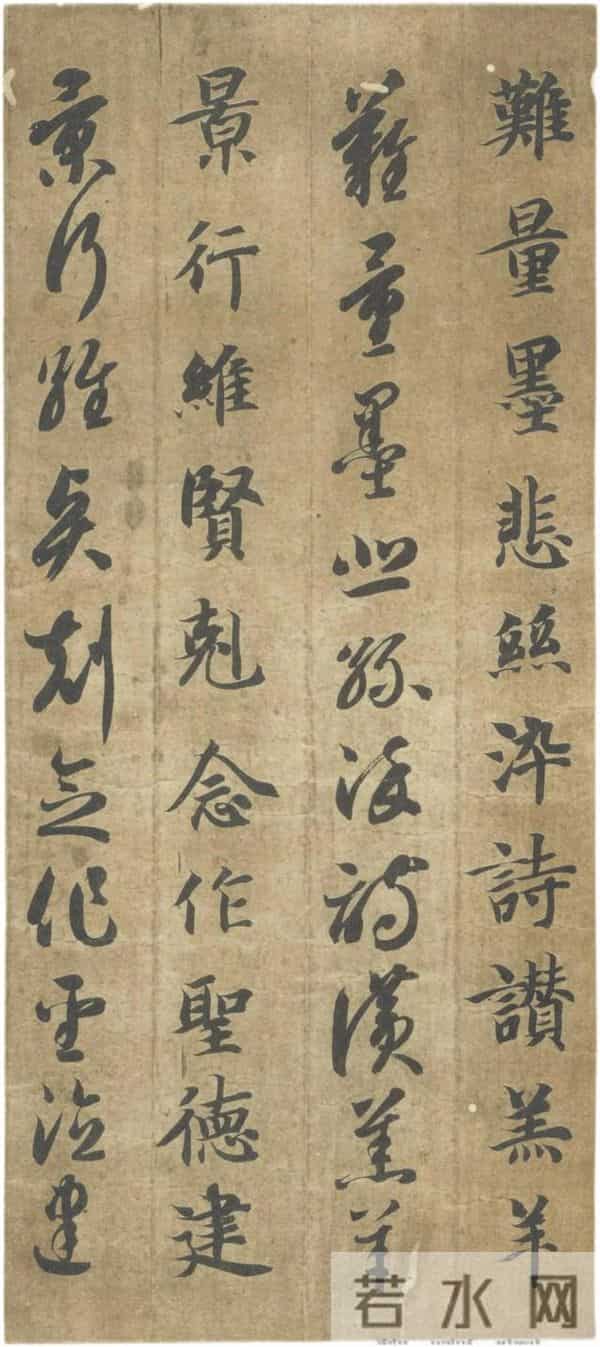 難量墨悲絲染詩讃羔羊
難量墨悲絲染詩讃羔羊
景行維賢剋念作聖德建
景行維賢剋念作聖德建
若水网